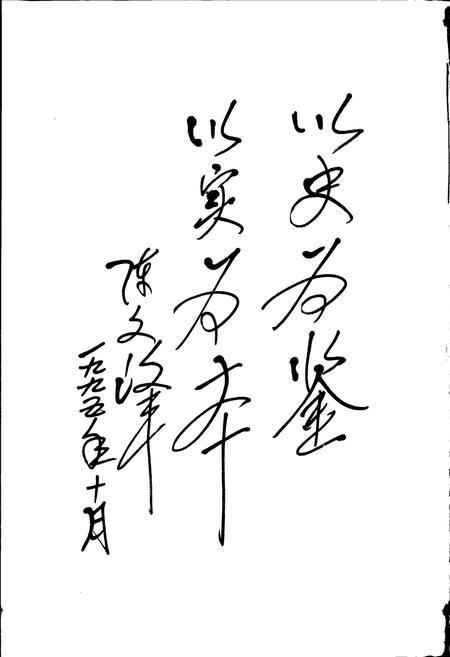 以史为鉴
以实为本
陈文
一九九五年十月